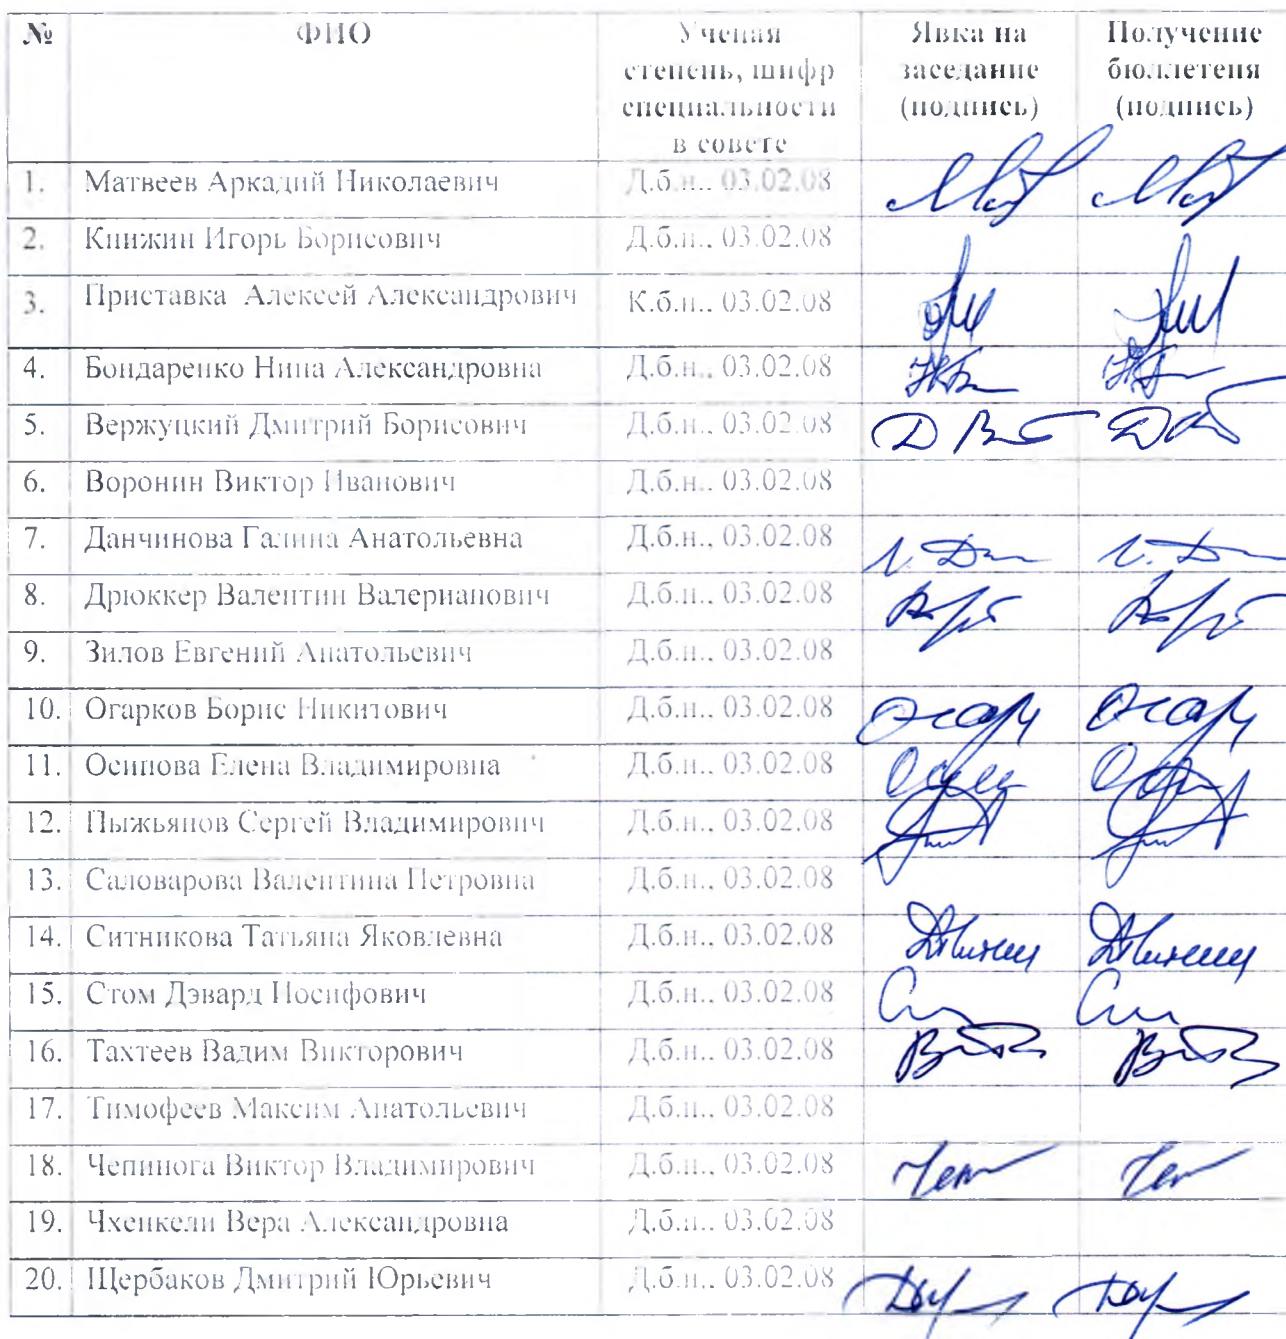 № ФИО Ученая степень, шифр специальности в совете Явка на заседание (подпись) Получение бюллетеня (подпись)
1. Матвеев Аркадий Николаевич Д.б.н., 03.02.08
2. Книжин Игорь Борисович Д.б.н., 03.02.08
3. Приставка Алексей Александрович К.б.н., 03.02.08
4. Бондаренко Нина Александровна Д.б.н., 03.02.08
5. Вержуцкий Дмитрий Борисович Д.б.н., 03.02.08
6. Воронин Виктор Иванович Д.б.н., 03.02.08
7. Данчинова Галина Анатольевна Д.б.н., 03.02.08
8. Дрюккер Валентин Валерианович Д.б.н., 03.02.08
9. Зилов Евгений Анатольевич Д.б.н., 03.02.08
10. Огарков Борис Никитович Д.б.н., 03.02.08
11. Осипова Елена Владимировна Д.б.н., 03.02.08
12. Пыжьянов Сергей Владимирович Д.б.н., 03.02.08
13. Саловарова Валентина Петровна Д.б.н., 03.02.08
14. Ситникова Татьяна Яковлевна Д.б.н., 03.02.08
15. Стом Дэвард Иосифович Д.б.н., 03.02.08
16. Тахтеев Вадим Викторович Д.б.н., 03.02.08
17. Тимофеев Максим Анатольевич Д.б.н., 03.02.08
18. Чепинога Виктор Владимирович Д.б.н., 03.02.08
19. Чхенкели Вера Александровна Д.б.н., 03.02.08
20. Щербаков Дмитрий Юрьевич Д.б.н., 03.02.08